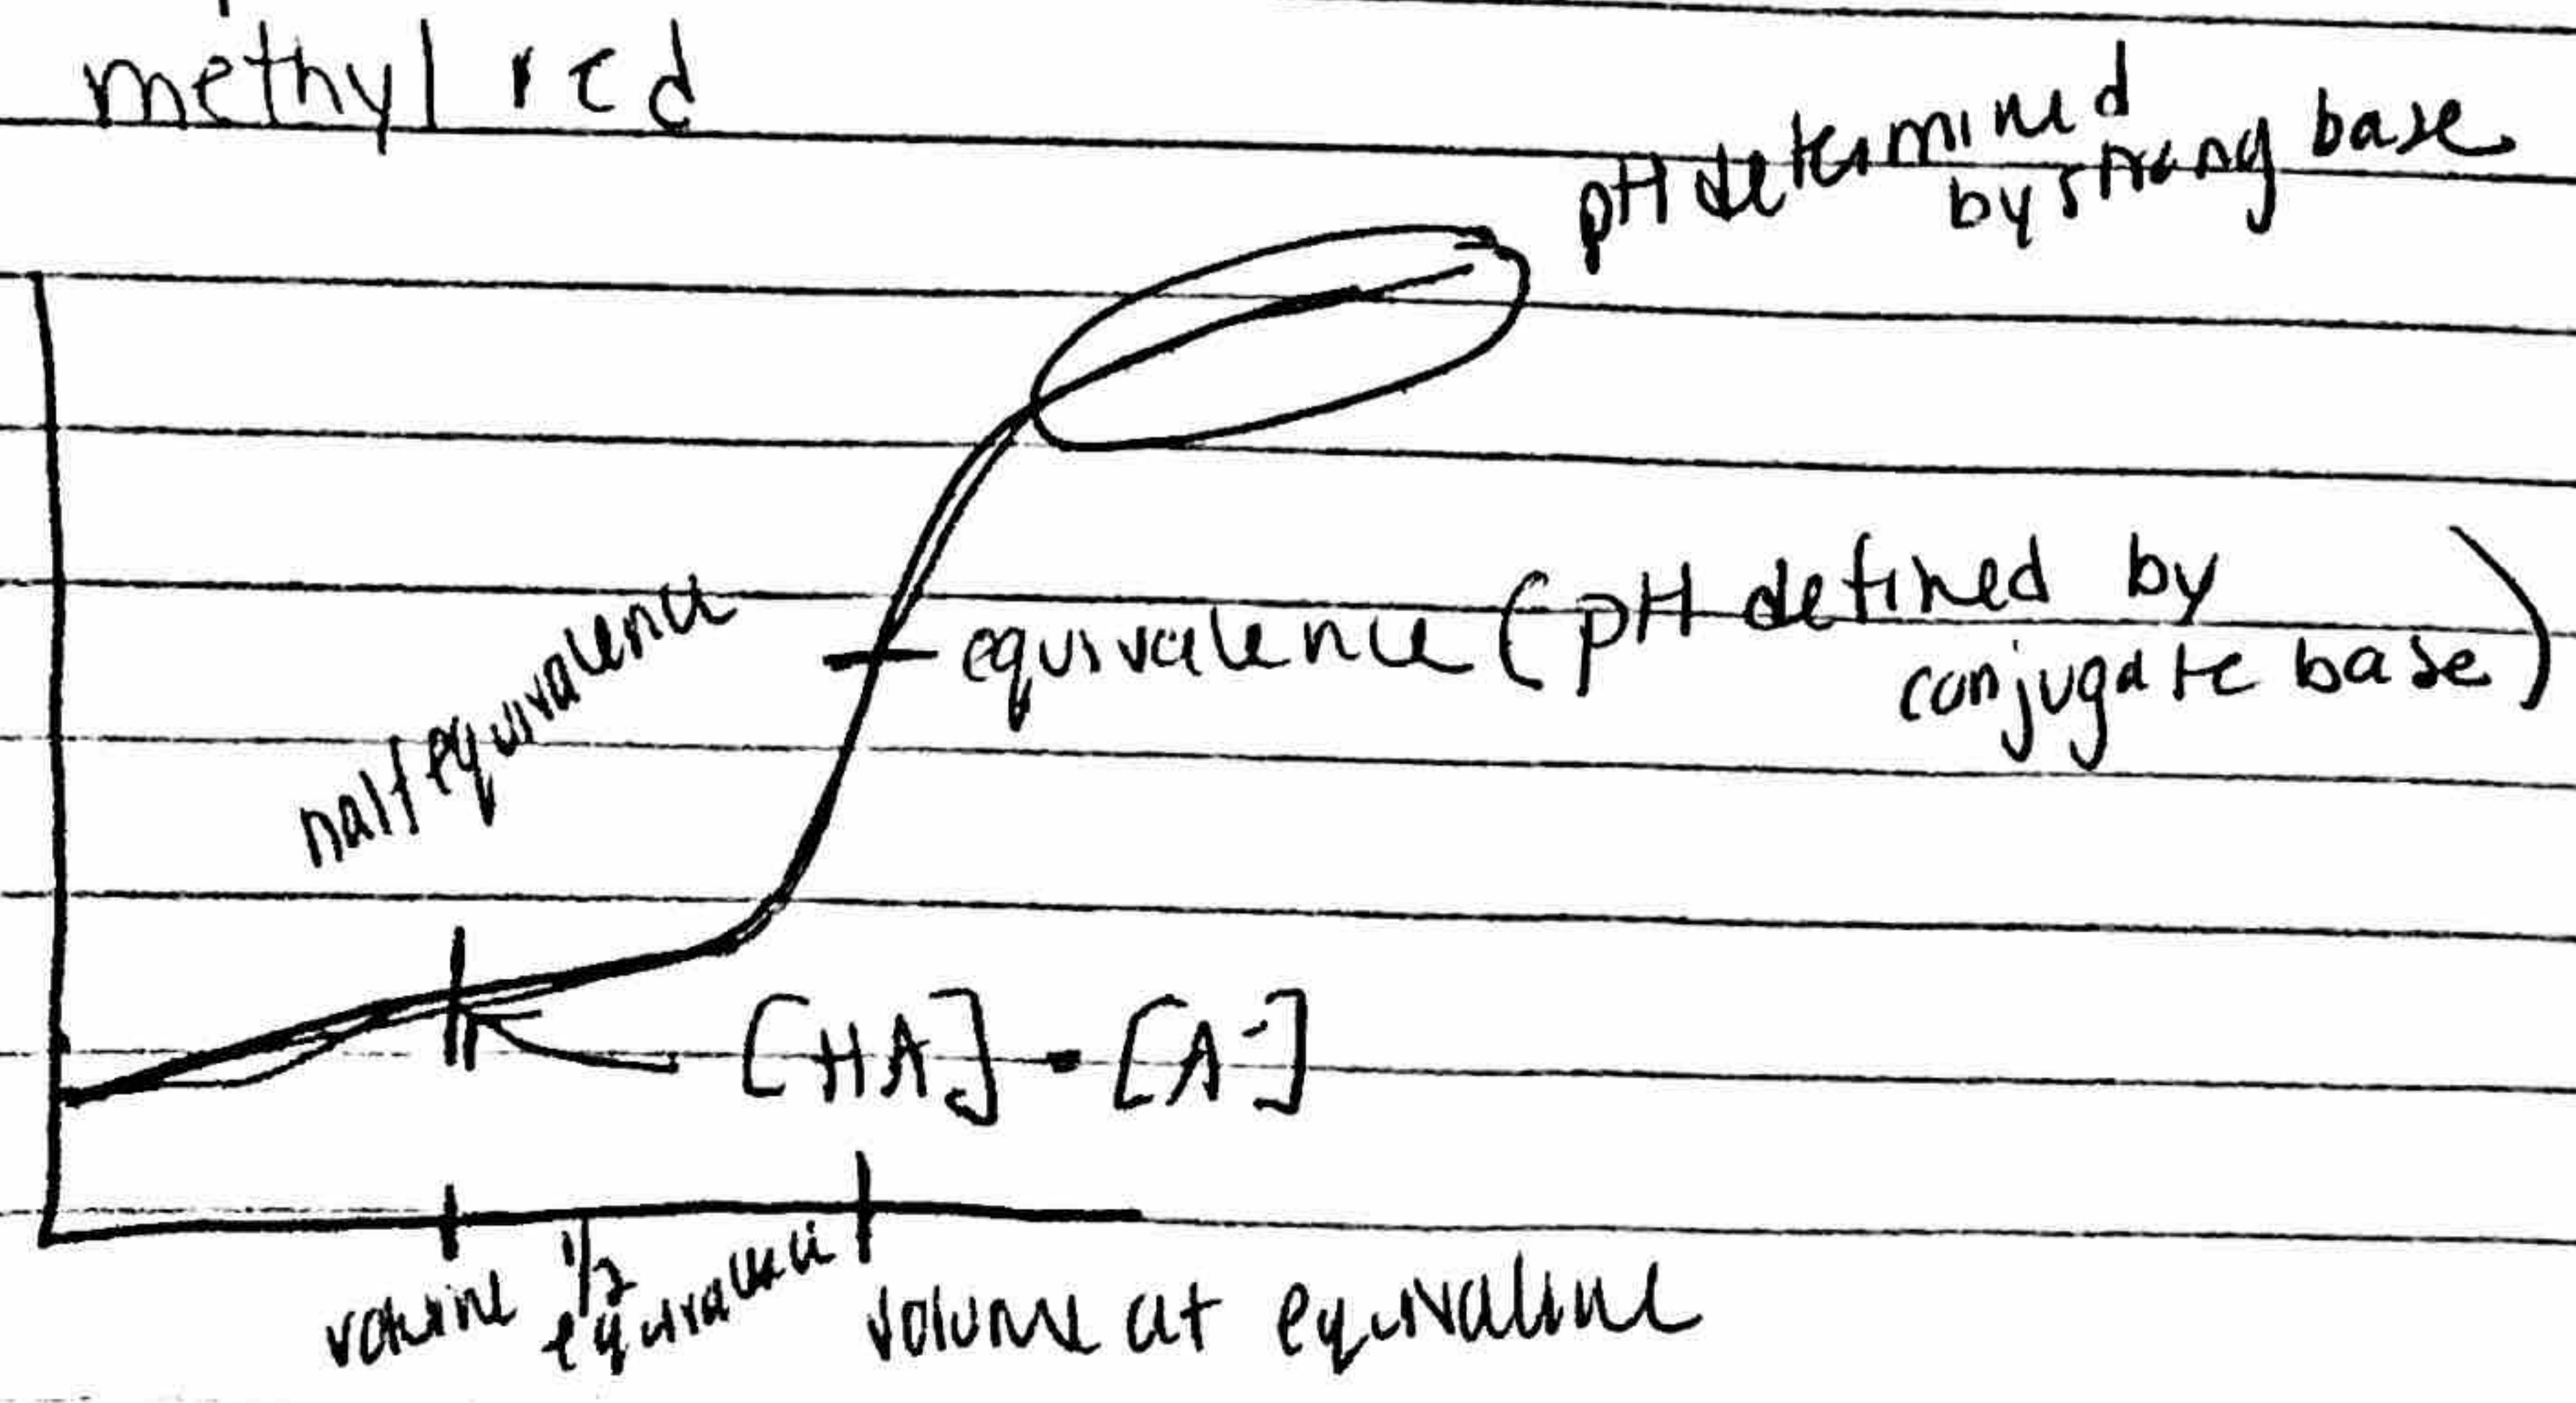 methyl red
pH determined
by strong base
half equivalence
equivalence (pH defined by
conjugate base)
[HA] = [A-]
volume 1/2
equivalence
volume at equivalence